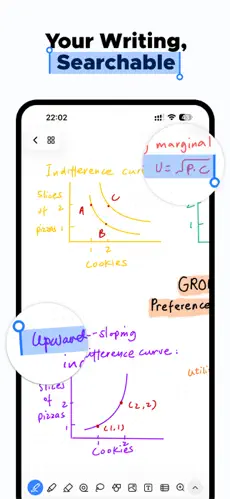 Your Writing,
Searchable
22:02
marginal
Indifference curv
U = √P.C
Slices
of
pizzas
2
1
A
C
B
1 2
Cookies
GRO
Preference
Upward-sloping
indifference curve:
utili
Slices
of
pizzas
2
1
(2,2)
(1,1)
1 2
Cookies